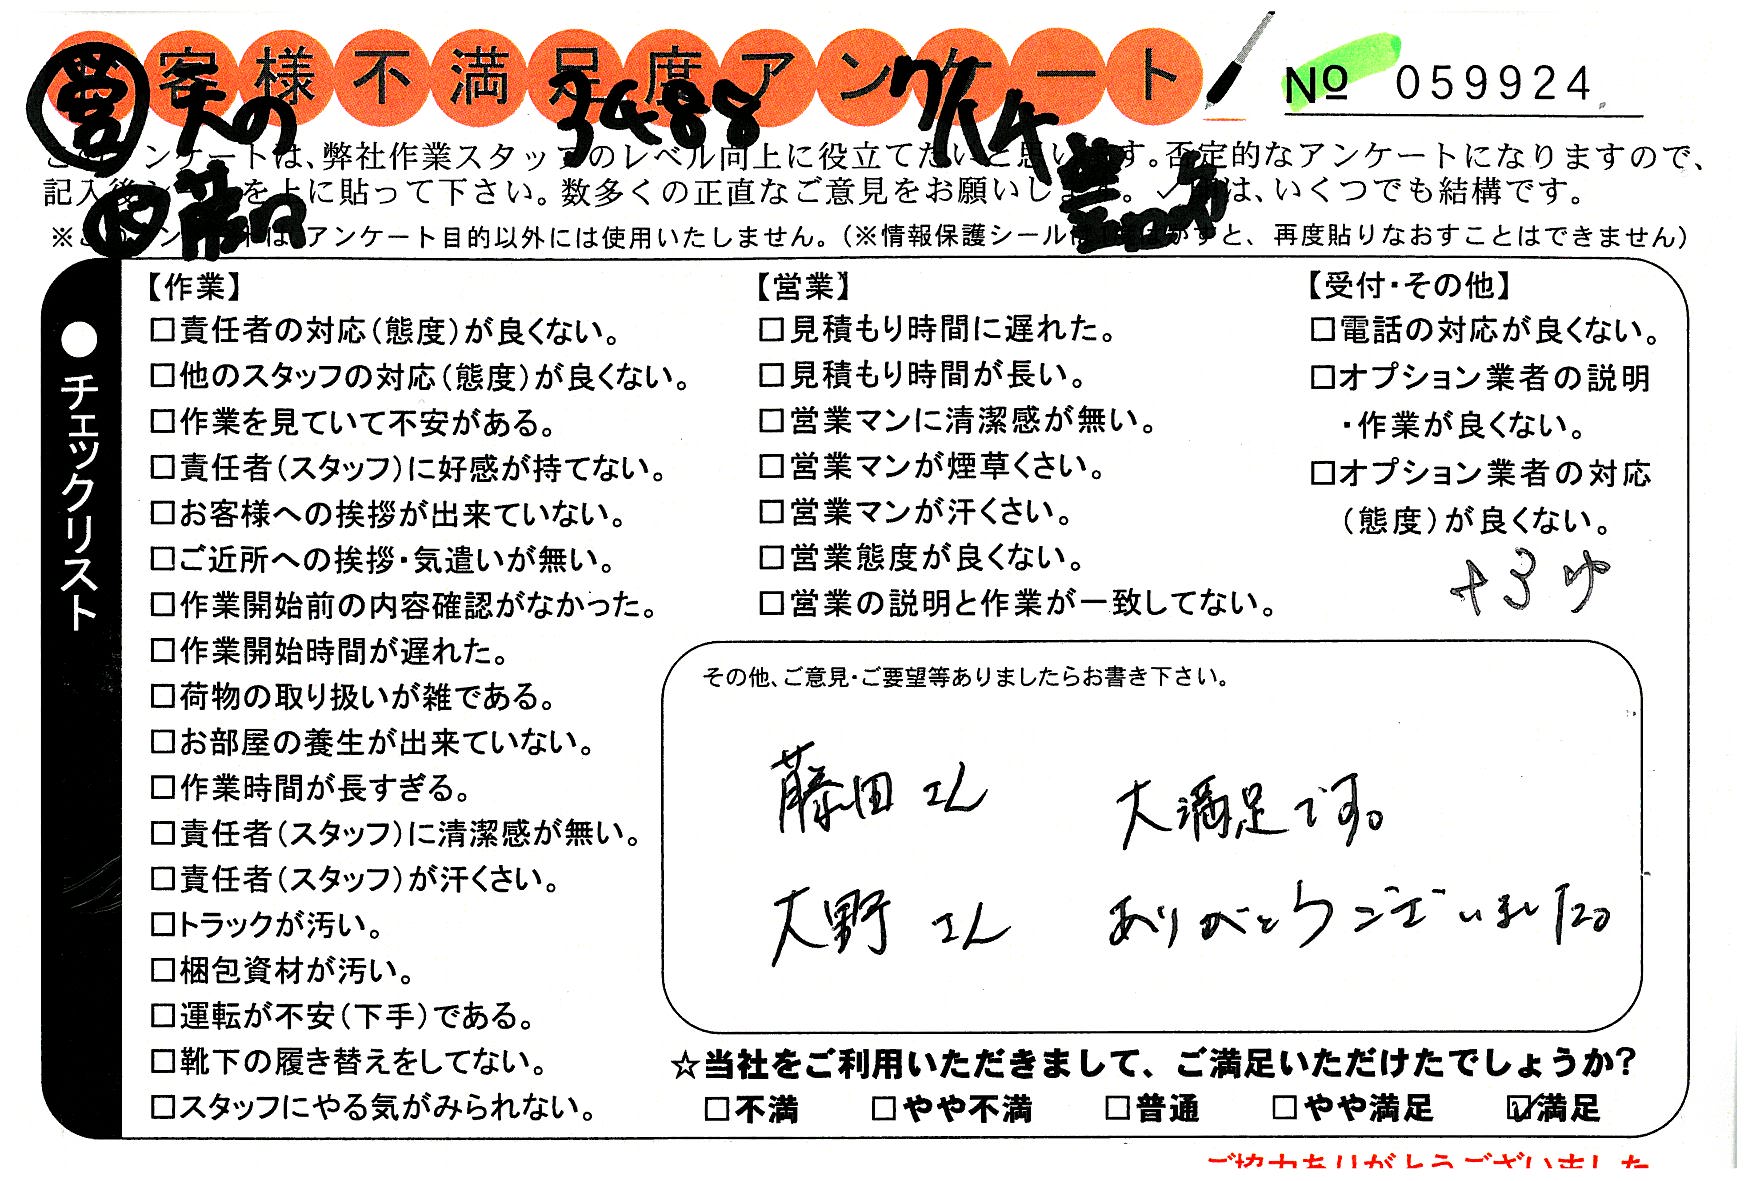 お客様不満足度アンケート
No 059924
営 大の 3488 7/14
このアンケートは、弊社作業スタッフのレベル向上に役立てたいと思います。否定的なアンケートになりますので、
記入後 を上に貼って下さい。数多くの正直なご意見をお願いします。✓ は、いくつでも結構です。
※このアンケートは、アンケート目的以外には使用いたしません。(※情報保護シールは がすと、再度貼りなおすことはできません)
●チェックリスト
【作業】
□責任者の対応(態度)が良くない。
□他のスタッフの対応(態度)が良くない。
□作業を見ていて不安がある。
□責任者(スタッフ)に好感が持てない。
□お客様への挨拶が出来ていない。
□ご近所への挨拶・気遣いが無い。
□作業開始前の内容確認がなかった。
□作業開始時間が遅れた。
□荷物の取り扱いが雑である。
□お部屋の養生が出来ていない。
□作業時間が長すぎる。
□責任者(スタッフ)に清潔感が無い。
□責任者(スタッフ)が汗くさい。
□トラックが汚い。
□梱包資材が汚い。
□運転が不安(下手)である。
□靴下の履き替えをしてない。
□スタッフにやる気がみられない。
【営業】
□見積もり時間に遅れた。
□見積もり時間が長い。
□営業マンに清潔感が無い。
□営業マンが煙草くさい。
□営業マンが汗くさい。
□営業態度が良くない。
□営業の説明と作業が一致してない。
【受付・その他】
□電話の対応が良くない。
□オプション業者の説明
・作業が良くない。
□オプション業者の対応
(態度)が良くない。
その他、ご意見・ご要望等ありましたらお書き下さい。
藤田さん 大満足です。
大野さん ありがとうございました。
☆当社をご利用いただきまして、ご満足いただけたでしょうか?
□不満 □やや不満 □普通 □やや満足 ☑満足
ご協力ありがとうございました